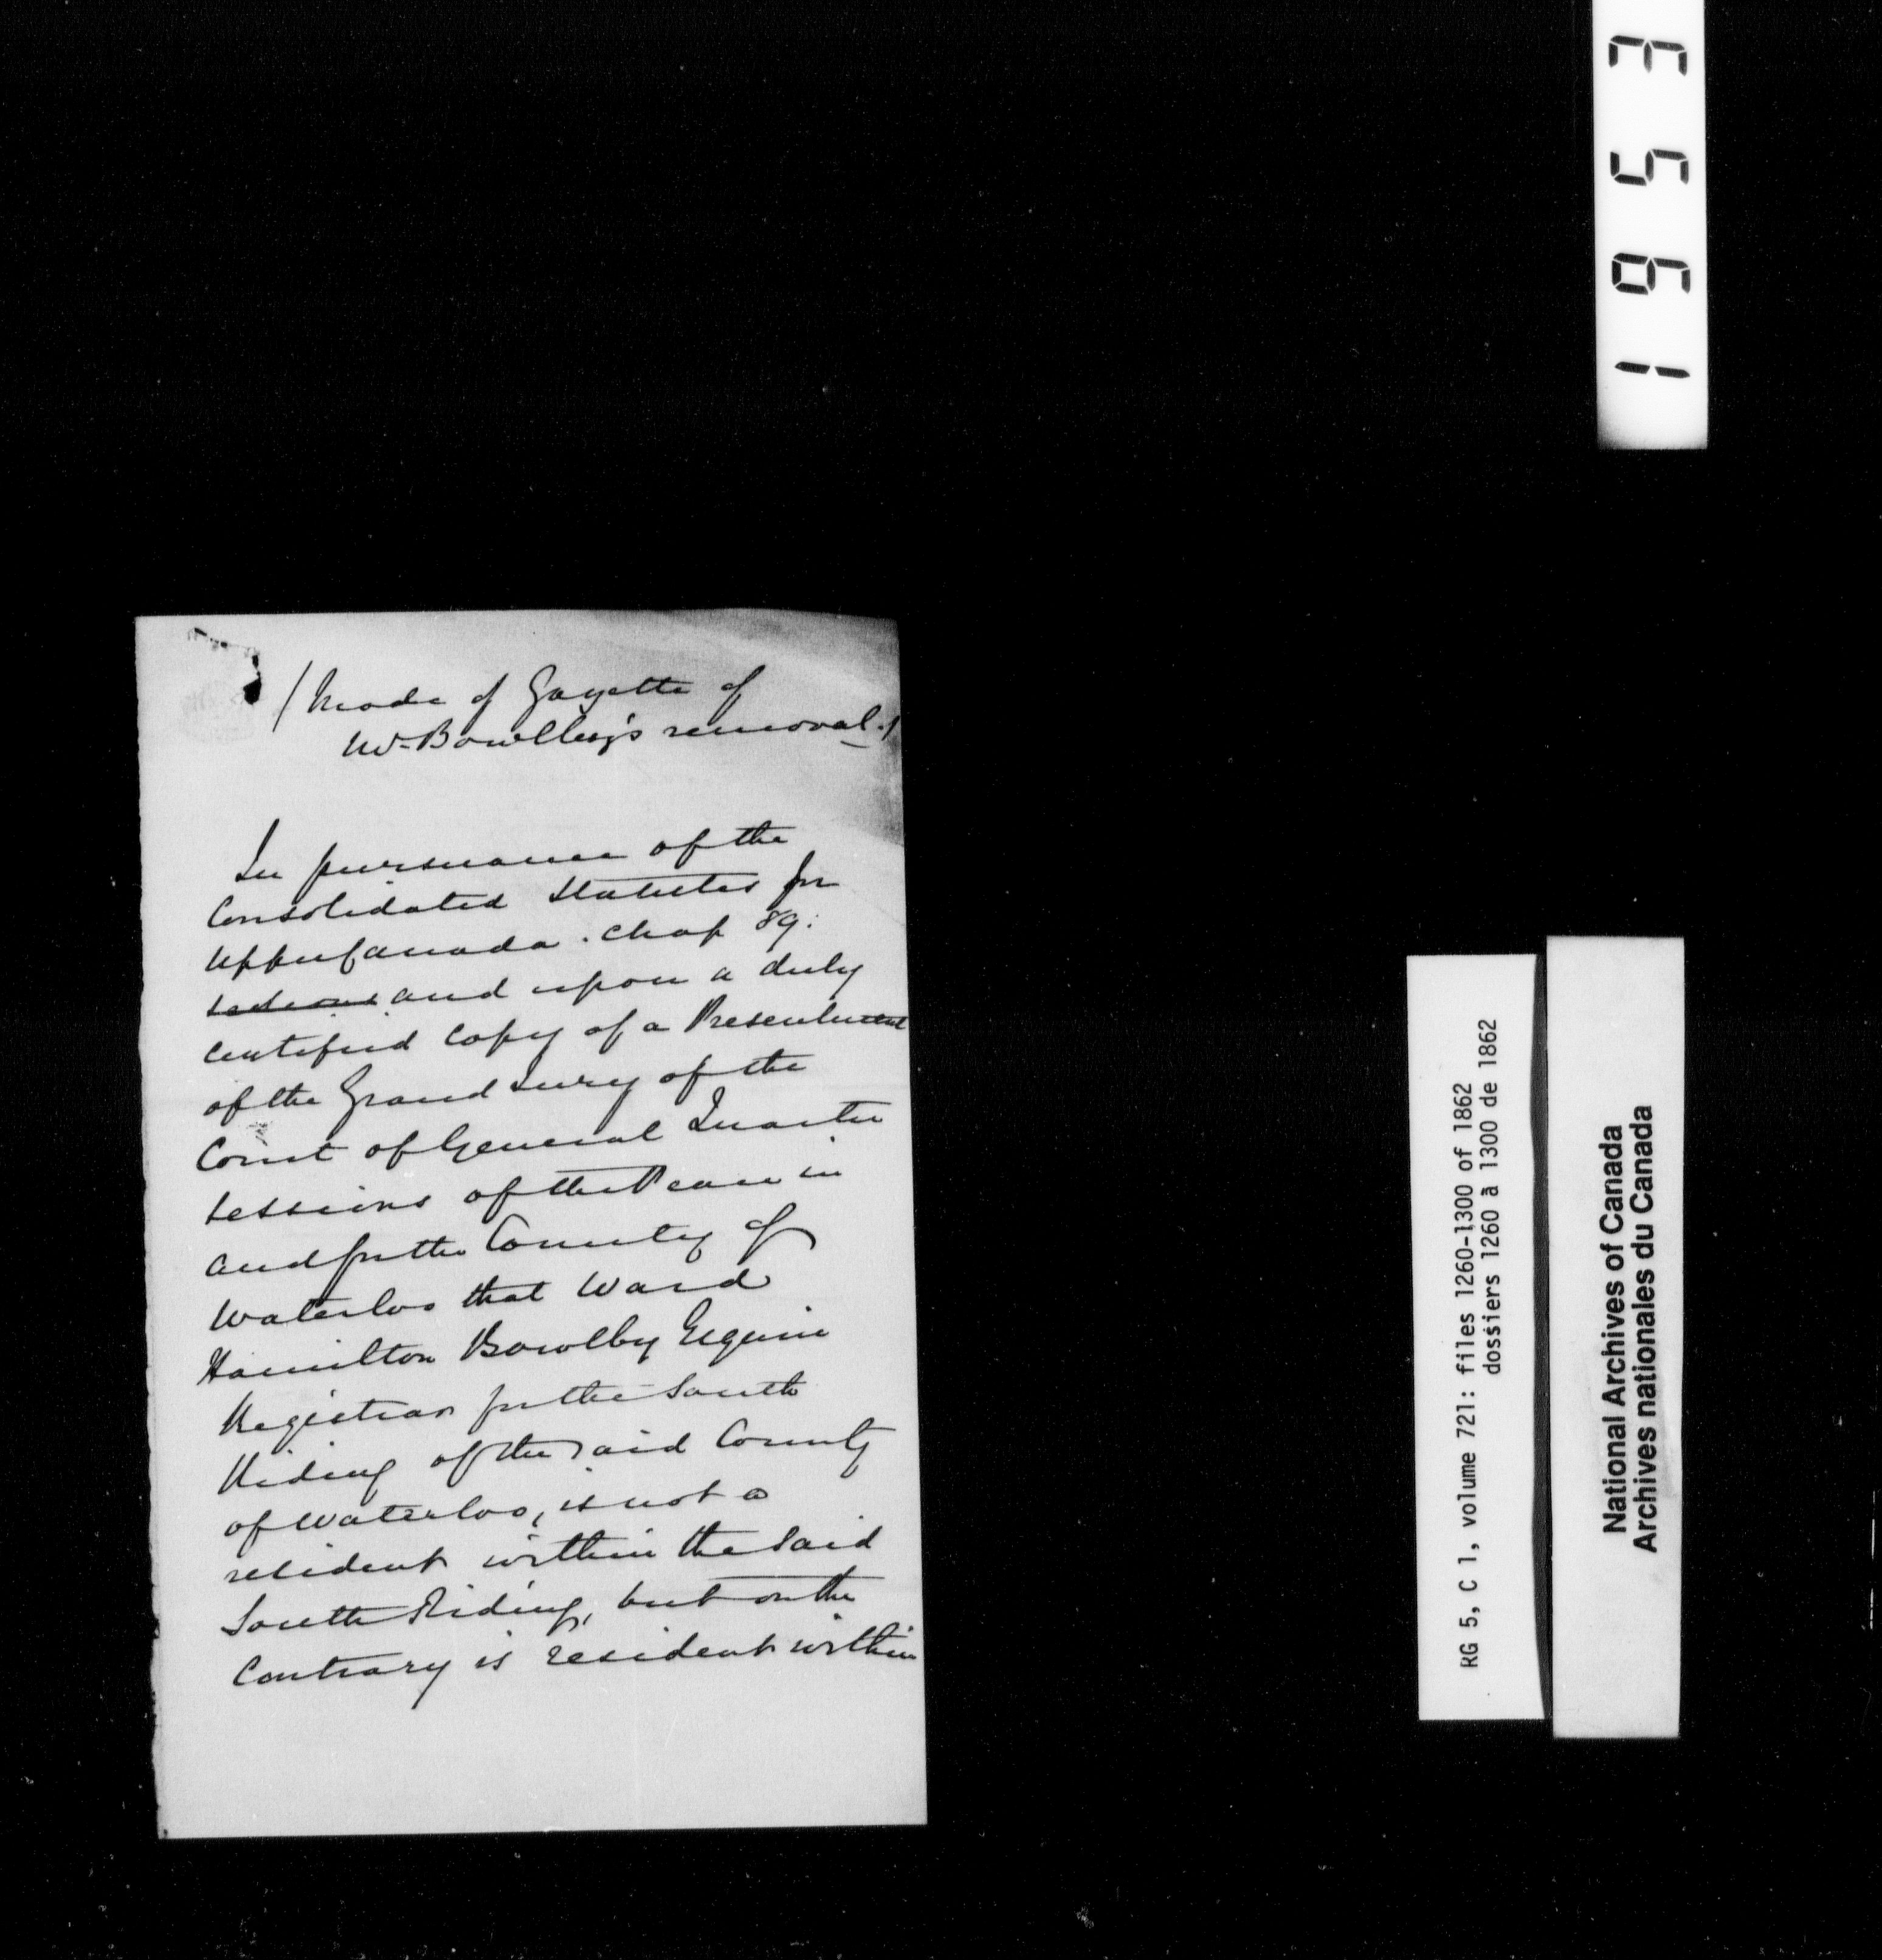 / Mode of Gazette of
Mr Bowlby's removal. /
In pursuance of the
Consolidated Statutes for
Upper Canada. Chap 89:
sections and upon a duly
certified copy of a Presentment
of the Grand Jury of the
Court of General Quarter
Sessions of the Peace in
and for the County of
Waterloo that Ward
Hamilton Bowlby Esquire
Registrar for the South
Riding of the said County
of Waterloo, is not a
resident within the said
South Riding, but on the
Contrary is resident within
1953
RG 5, C 1, volume 721: files 1260-1300 of 1862
dossiers 1260 à 1300 de 1862
National Archives of Canada
Archives nationales du Canada